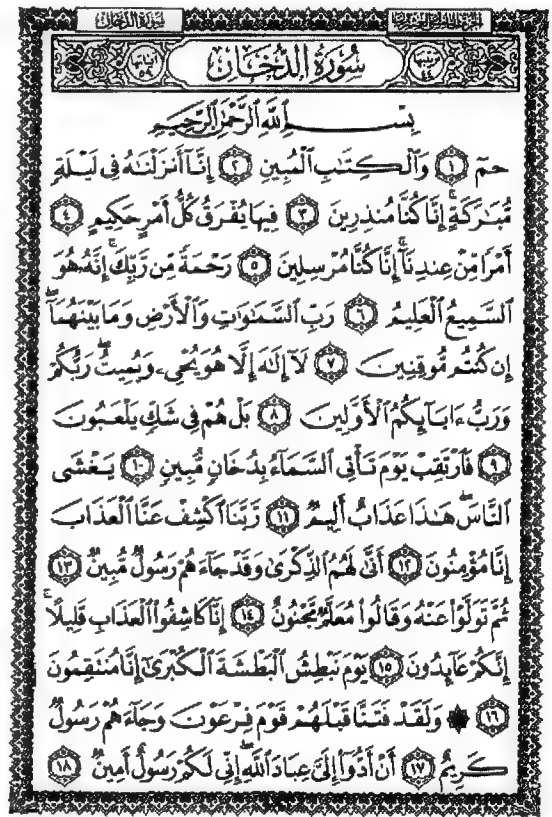 سُورَةُ الدُّخَانِ
الجزء الخامس والعشرون
سُورَةُ الدُّخَان
ترتيبها ٤٤
آياتها ٥٩
بِسْمِ اللَّهِ الرَّحْمَٰنِ الرَّحِيمِ
حمٓ ١ وَالْكِتَابِ الْمُبِينِ ٢ إِنَّا أَنزَلْنَاهُ فِي لَيْلَةٍ
مُّبَارَكَةٍ ۚ إِنَّا كُنَّا مُنذِرِينَ ٣ فِيهَا يُفْرَقُ كُلُّ أَمْرٍ حَكِيمٍ ٤
أَمْرًا مِّنْ عِندِنَا ۚ إِنَّا كُنَّا مُرْسِلِينَ ٥ رَحْمَةً مِّن رَّبِّكَ ۚ إِنَّهُ هُوَ
السَّمِيعُ الْعَلِيمُ ٦ رَبِّ السَّمَاوَاتِ وَالْأَرْضِ وَمَا بَيْنَهُمَا ۖ
إِن كُنتُم مُّوقِنِينَ ٧ لَا إِلَٰهَ إِلَّا هُوَ يُحْيِي وَيُمِيتُ ۖ رَبُّكُمْ
وَرَبُّ ءَابَائِكُمُ الْأَوَّلِينَ ٨ بَلْ هُمْ فِي شَكٍّ يَلْعَبُونَ
٩ فَارْتَقِبْ يَوْمَ تَأْتِي السَّمَاءُ بِدُخَانٍ مُّبِينٍ ١٠ يَغْشَى
النَّاسَ ۖ هَٰذَا عَذَابٌ أَلِيمٌ ١١ رَّبَّنَا اكْشِفْ عَنَّا الْعَذَابَ
إِنَّا مُؤْمِنُونَ ١٢ أَنَّىٰ لَهُمُ الذِّكْرَىٰ وَقَدْ جَاءَهُمْ رَسُولٌ مُّبِينٌ ١٣
ثُمَّ تَوَلَّوْا عَنْهُ وَقَالُوا مُعَلَّمٌ مَّجْنُونٌ ١٤ إِنَّا كَاشِفُوا الْعَذَابِ قَلِيلًا ۚ
إِنَّكُمْ عَائِدُونَ ١٥ يَوْمَ نَبْطِشُ الْبَطْشَةَ الْكُبْرَىٰ إِنَّا مُنتَقِمُونَ
١٦ ۞ وَلَقَدْ فَتَنَّا قَبْلَهُمْ قَوْمَ فِرْعَوْنَ وَجَاءَهُمْ رَسُولٌ
كَرِيمٌ ١٧ أَنْ أَدُّوا إِلَيَّ عِبَادَ اللَّهِ ۖ إِنِّي لَكُمْ رَسُولٌ أَمِينٌ ١٨